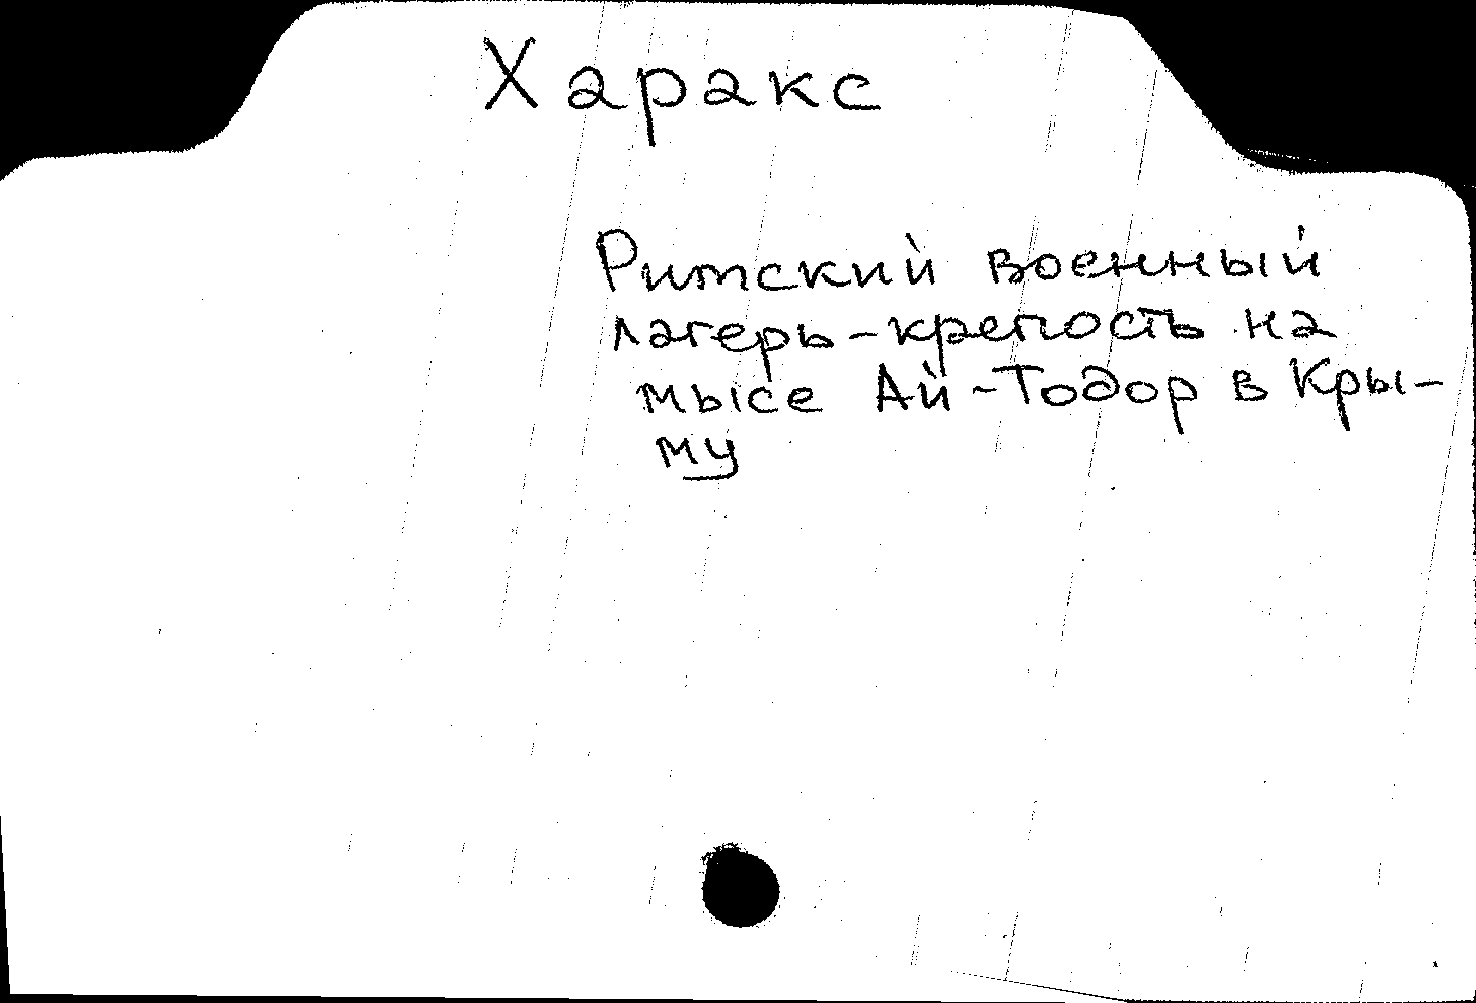 Харакс
Римский военный
лагерь-крепость на
мысе Ай-Тодор в Кры-
му